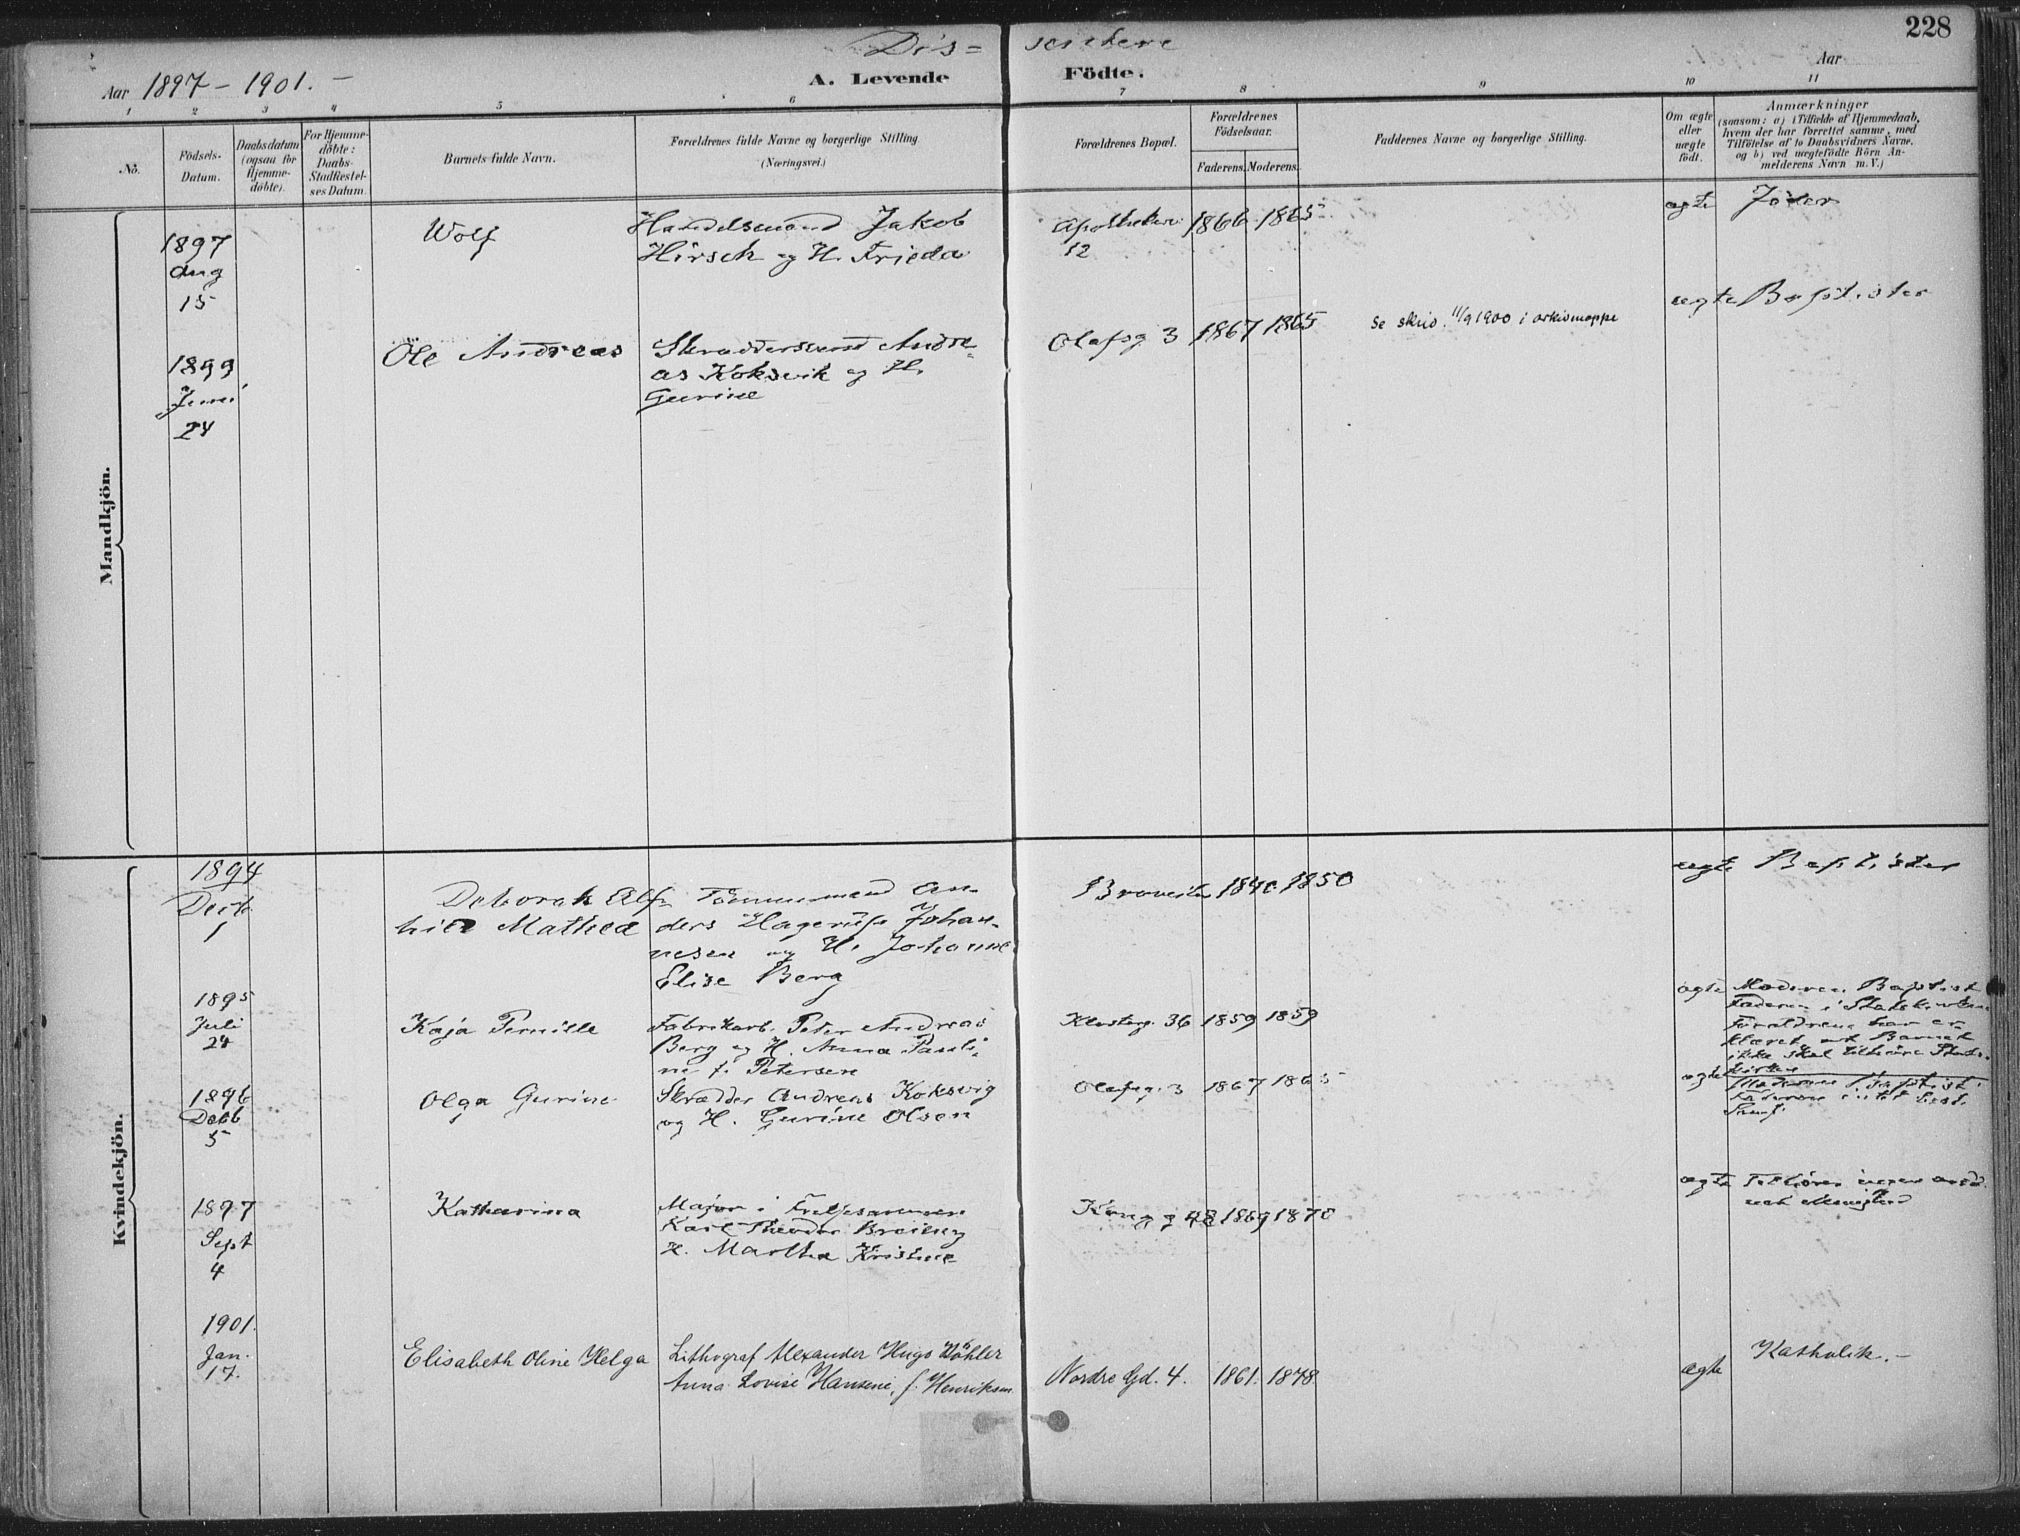 228
Dis= senterе
Aar 1897 - 1901. -
A. Levende Födte.
Aar
1 2 3 4 5 6 7 8 9 10 11
No.
Födsels-
Datum.
Daabsdatum
(ogsaa for
Hjemme-
döbte).
For Hjemme-
döbte:
Daabs-
Stadfæstel-
ses Datum.
Barnets fulde Navn.
Forældrenes fulde Navne og borgerlige Stilling
(Næringsvei.)
Forældrenes Bopæl.
Forældrenes
Födselsaar.
Faderens. Moderens.
Faddernes Navne og borgerlige Stilling.
Om ægte
eller
uægte
födt.
Anmærkninger
(saasom: a) i Tilfælde af Hjemmedaab,
hvem der har forrettet samme, med
Tilföielse af to Daabsvidners Navne.
og b) ved uægtefödte Börn An-
melderens Navn m. V.)
Mandkjön.
1897
Aug
15
Wolf
Handelsmand Jakob
Hirsch og H. Frieda
Apotheker
12
1866 1865
ægte
Jöder
1899
Juni
24
Ole Andreas
Skraddersvend Andre-
as Koksvik og H.
Gurine
Olafsg 3
1867 1865
Se skriv. 11/9 1900 i arkivmappe
ægte
Baptister
Kvindekjön.
1894
Decb
1
Deborah Alf-
hild Mathea
Tömmermand An-
ders Hagerup Johan-
nesen og H. Johanne
Elise Berg
1840 1850
ægte
Baptister
1895
Juli
24
Kaja Pernille
Fabrikarb. Peter Andreas
Berg og H. Anna Pauli-
ne f. Petersen
Klosterg. 36
1859 1859
ægte
Moderen Baptist
Faderen i Statskirken
Forældrene har er-
klæret at Barnet
ikke skal tilhöre Stats-
kirken
1896
Debb
5
Olga Gurine
Skrædder Andreas Koksvig
og H. Gurine Olsen
Olafsg. 3
1867 1865
ægte
Moderen Baptist
1897
Sept
4
Katharina
Major i Frelsesarmeen
Karl Theodor Breien og
H. Martha Kristine
Kong g 48
1869 1870
ægte
Tilhörer ingen
1901.
Jan.
17.
Elisabeth Oline Helga
Lithograf Alexander Hugo Wöhler
Anna Lovise Hansine, f. Henriksen
Nordre Gd. 4.
1861. 1878
ægte
Katholik. -